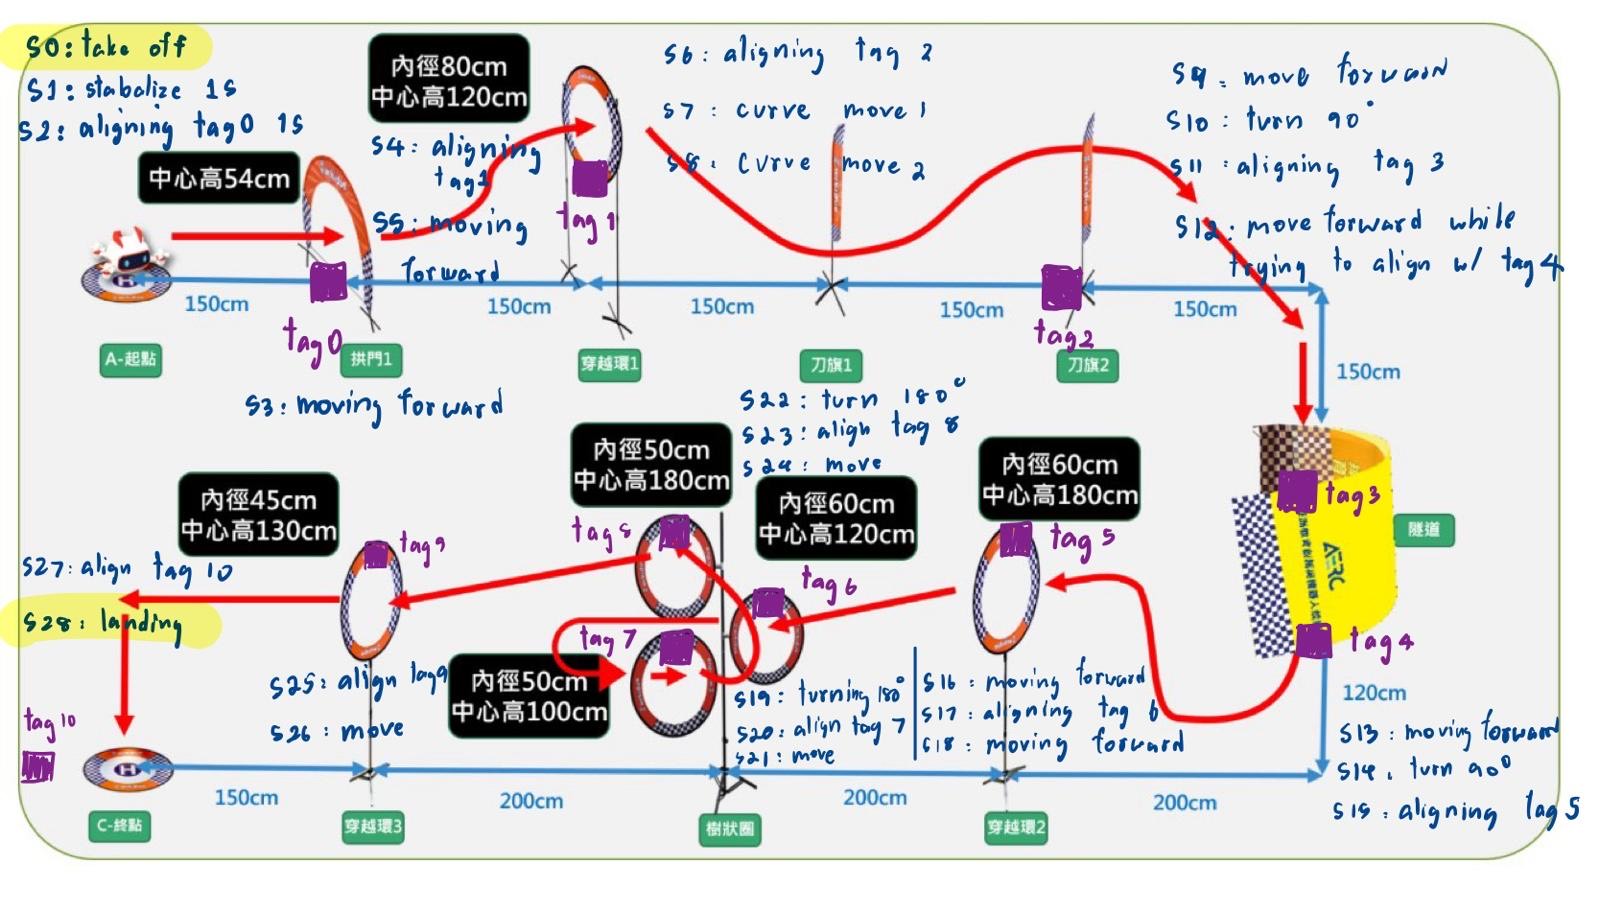 S0: take off
S1: stabalize 1S
S2: aligning tag0 1S
中心高54cm
內徑80cm
中心高120cm
S4: aligning
tag1
S5: moving
forward
tag 1
S6: aligning tag 2
S7: curve move 1
S8: curve move 2
S9: move forward
S10: turn 90°
S11: aligning tag 3
S12: move forward while
trying to align w/ tag 4
150cm
150cm
150cm
150cm
150cm
tag0
tag2
A-起點
拱門1
穿越環1
刀旗1
刀旗2
150cm
S3: moving forward
S22: turn 180°
S23: align tag 8
S24: move
內徑45cm
中心高130cm
內徑50cm
中心高180cm
內徑60cm
中心高120cm
內徑60cm
中心高180cm
tag3
隧道
AERC
tag9
tag8
tag 5
tag 6
S27: align tag 10
S28: landing
tag 7
tag4
內徑50cm
中心高100cm
S25: align tag9
S26: move
S19: turning 180°
S20: align tag 7
S21: move
S16: moving forward
S17: aligning tag 6
S18: moving forward
120cm
S13: moving forward
S14: turn 90°
S15: aligning tag 5
tag 10
H
150cm
200cm
200cm
200cm
C-終點
穿越環3
樹狀圈
穿越環2